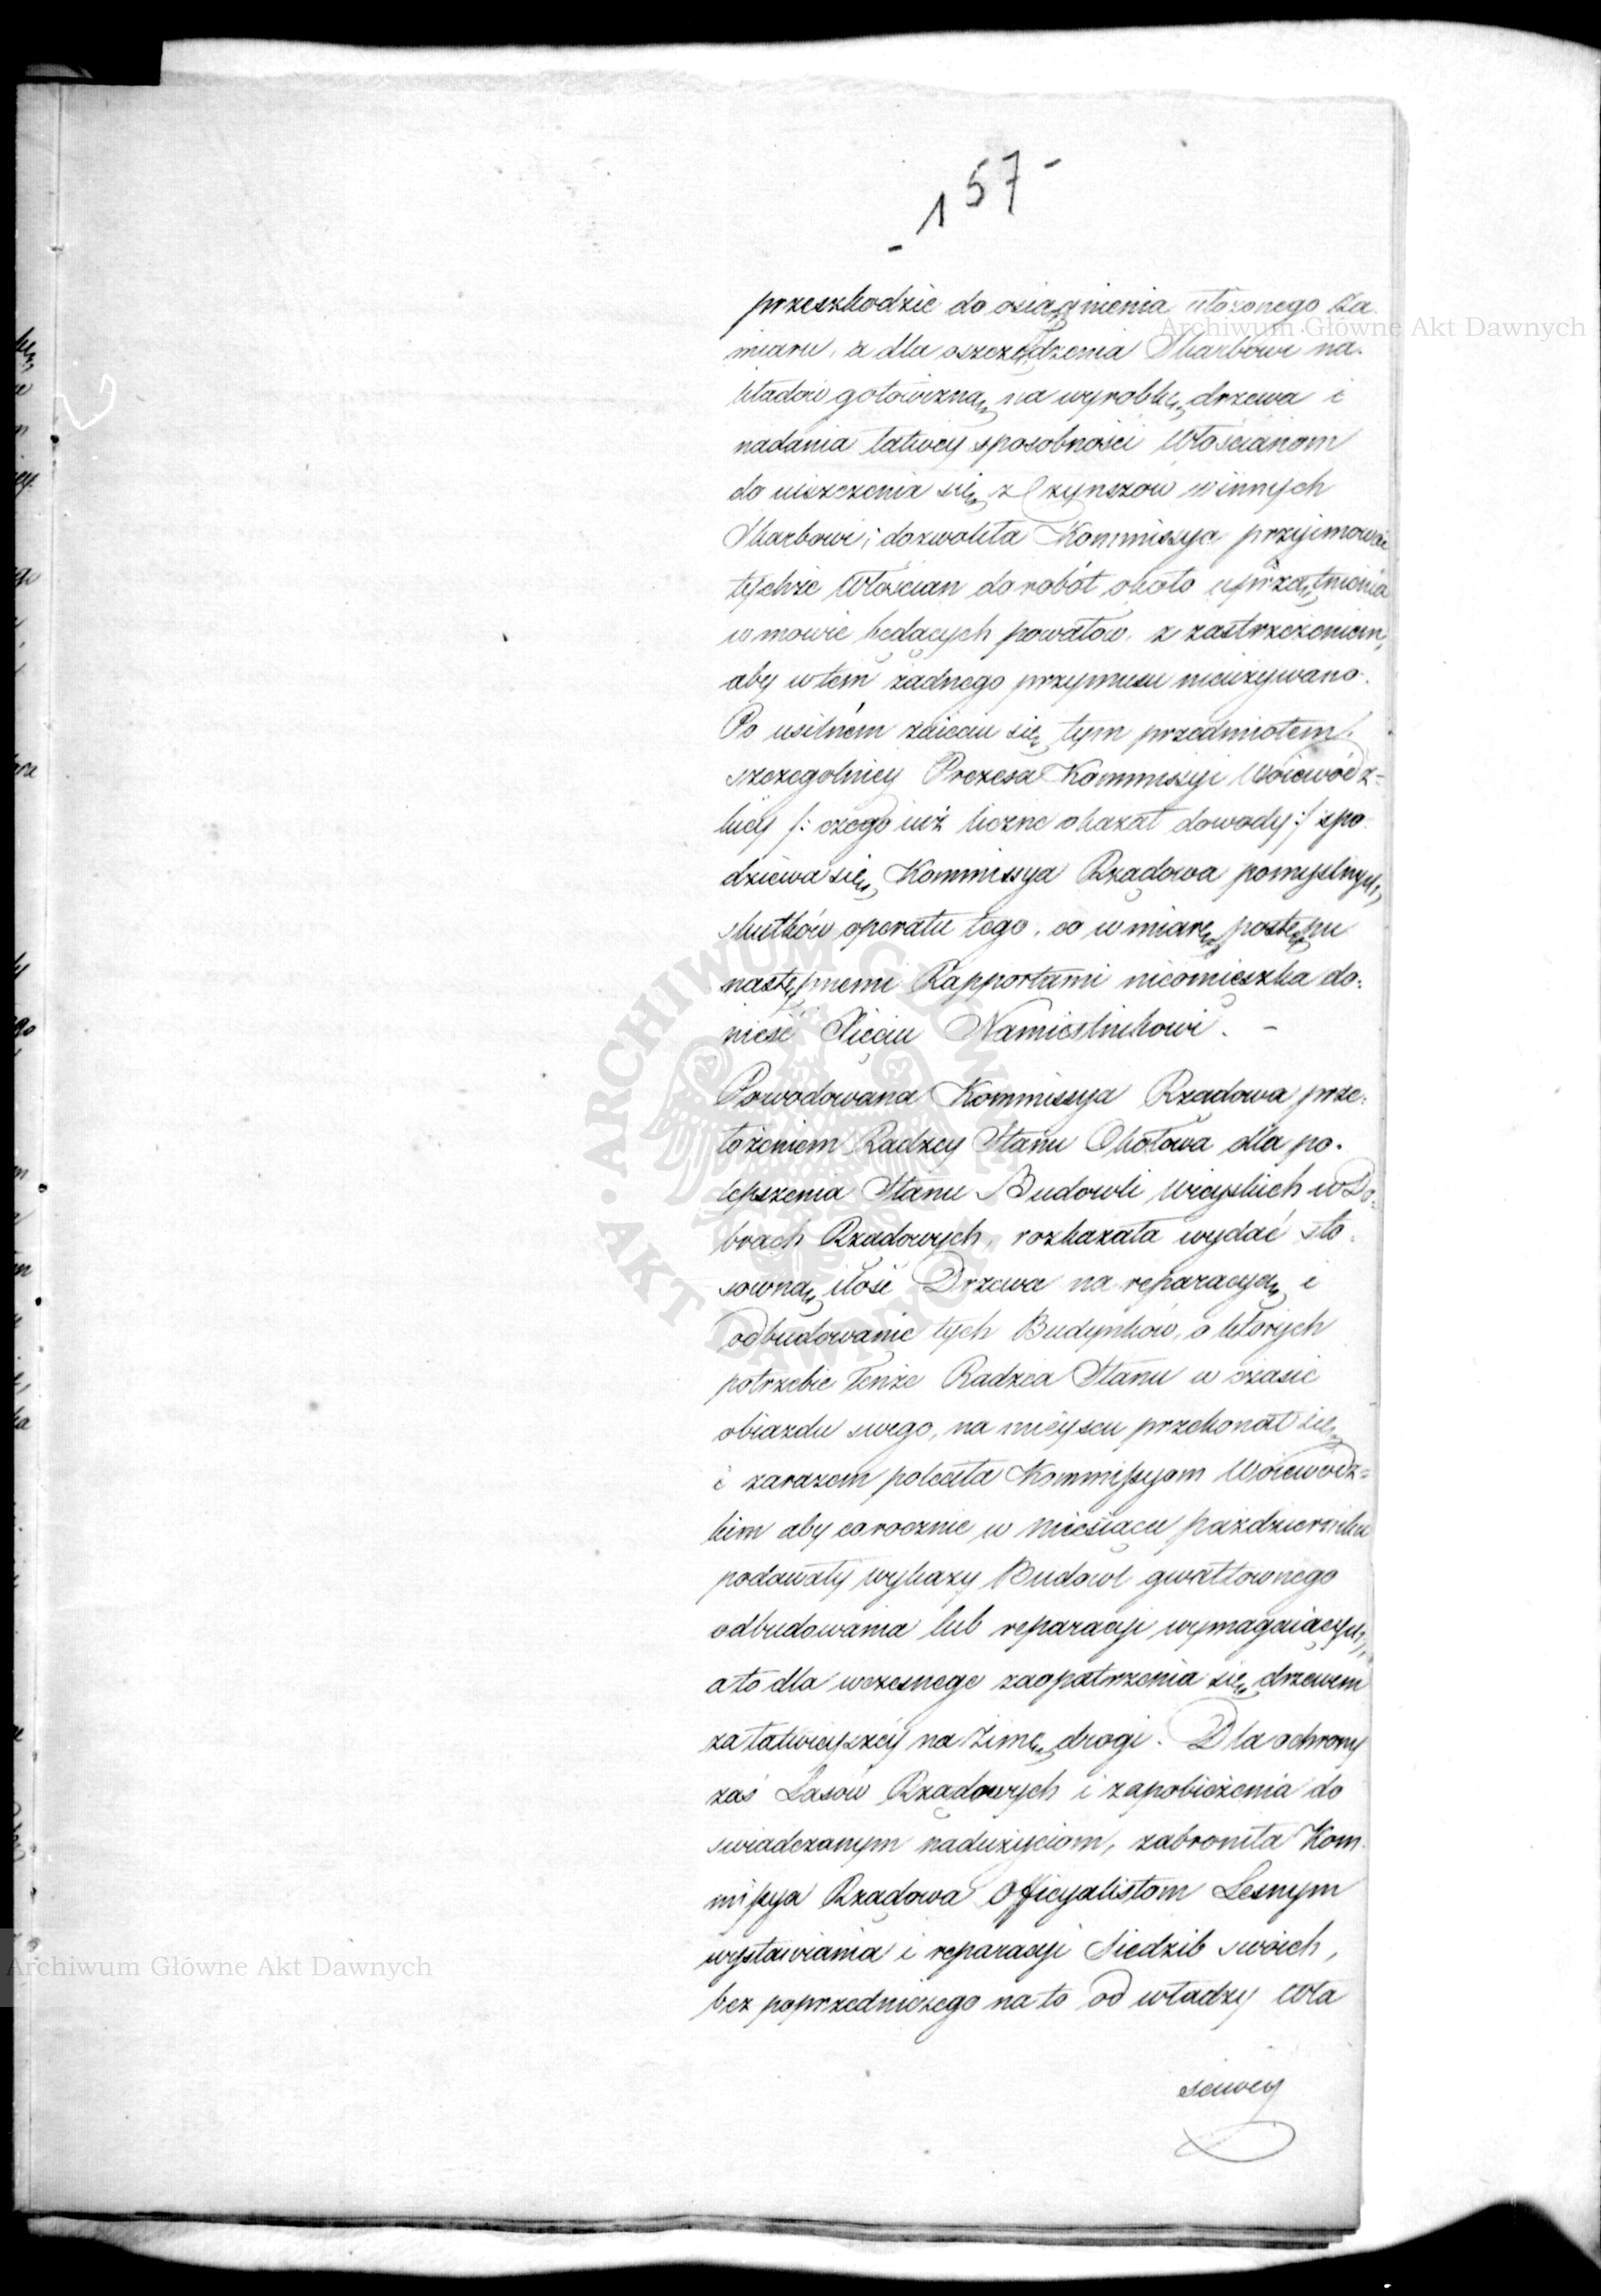 - 157 -
przeszkodzić do osiągnienia ułożonego za
Archiwum Główne Akt Dawnych
miaru, a dla oszczędzenia Skarbowi na-
kładów gotowizną na wyrobkę drzewa i
nadania łatwey sposobności Włościanom
do uiszczenia się z Czynszów winnych
Skarbowi; dozwoliła Kommissya przyjmować
tychże Włościan do robót około uprzątnienia
w mowie będących powałów, z zastrzeżeniem,
aby w tem żadnego przymusu nieużywano.
Po usilném zaięciu się tym przedmiotem
szczegolniey Prezesa Kommissyi Woiewódz=
kiey /: czego iuż liczne okazał dowody :/ spo
dziewa się Kommissya Rządowa pomyślnych
skutków operatu tego, co w miarę postępu
następnemi Rapportami nieomieszka do-
nieść Xięciu Namiestnikowi. -
ARCHIWUM GŁÓWNE AKT DAWNYCH
Powodowana Kommissya Rządowa prze-
łożeniem Radzcy Stanu Okołowa dla po-
lepszenia Stanu Budowli wieyskich w Do-
brach Rządowych, rozkazała wydać sto-
sowną ilość Drzewa na reparacyą i
odbudowanie tych Budynków, o których
potrzebie tenże Radzca Stanu w czasie
obiazdu swego, na mieyscu przekonał się
i zarazem poleciła Kommissyom Woiewódz=
kim aby corocznie w miesiącu październiku
podawały wykazy Budowl gwałtownego
odbudowania lub reparacyi wymagaiących,
a to dla wczesnego zaopatrzenia się drzewem
za łatwieyszéy na zimę drogi. Dla ochrony
zaś Lasów Rządowych i zapobieżenia do
świadczanym nadużyciom, zabroniła Kom-
missya Rządowa Officyalistom Leśnym
wystawiania i reparacyi Siedzib swoich,
Archiwum Główne Akt Dawnych
bez poprzedniczego na to od władzy Wła
ściwey